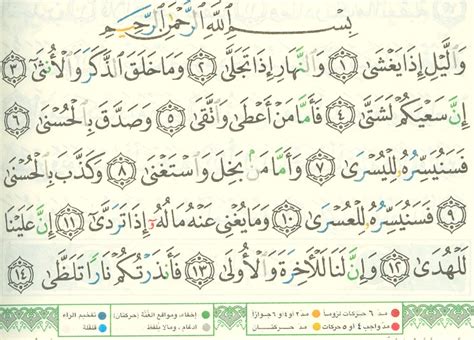 بِسْمِ ٱللَّهِ ٱلرَّحْمَٰنِ ٱلرَّحِيمِ
وَٱلَّيْلِ إِذَا يَغْشَىٰ ١ وَٱلنَّهَارِ إِذَا تَجَلَّىٰ ٢ وَمَا خَلَقَ ٱلذَّكَرَ وَٱلْأُنثَىٰ ٣
إِنَّ سَعْيَكُمْ لَشَتَّىٰ ٤ فَأَمَّا مَنْ أَعْطَىٰ وَٱتَّقَىٰ ٥ وَصَدَّقَ بِٱلْحُسْنَىٰ ٦
فَسَنُيَسِّرُهُۥ لِلْيُسْرَىٰ ٧ وَأَمَّا مَنۢ بَخِلَ وَٱسْتَغْنَىٰ ٨ وَكَذَّبَ بِٱلْحُسْنَىٰ
٩ فَسَنُيَسِّرُهُۥ لِلْعُسْرَىٰ ١٠ وَمَا يُغْنِى عَنْهُ مَالُهُۥٓ إِذَا تَرَدَّىٰٓ ١١ إِنَّ عَلَيْنَا
لَلْهُدَىٰ ١٢ وَإِنَّ لَنَا لَلْـَٔاخِرَةَ وَٱلْأُولَىٰ ١٣ فَأَنذَرْتُكُمْ نَارًا تَلَظَّىٰ ١٤
مد ٦ حركات لزوماً مد ٢ أو ٤ أو ٦ جوازاً إخفاء، ومواقع الغنّة (حركتان) تفخيم الراء
مد واجب ٤ أو ٥ حركات مد حركتان ادغام، وما لا يلفظ قلقلة